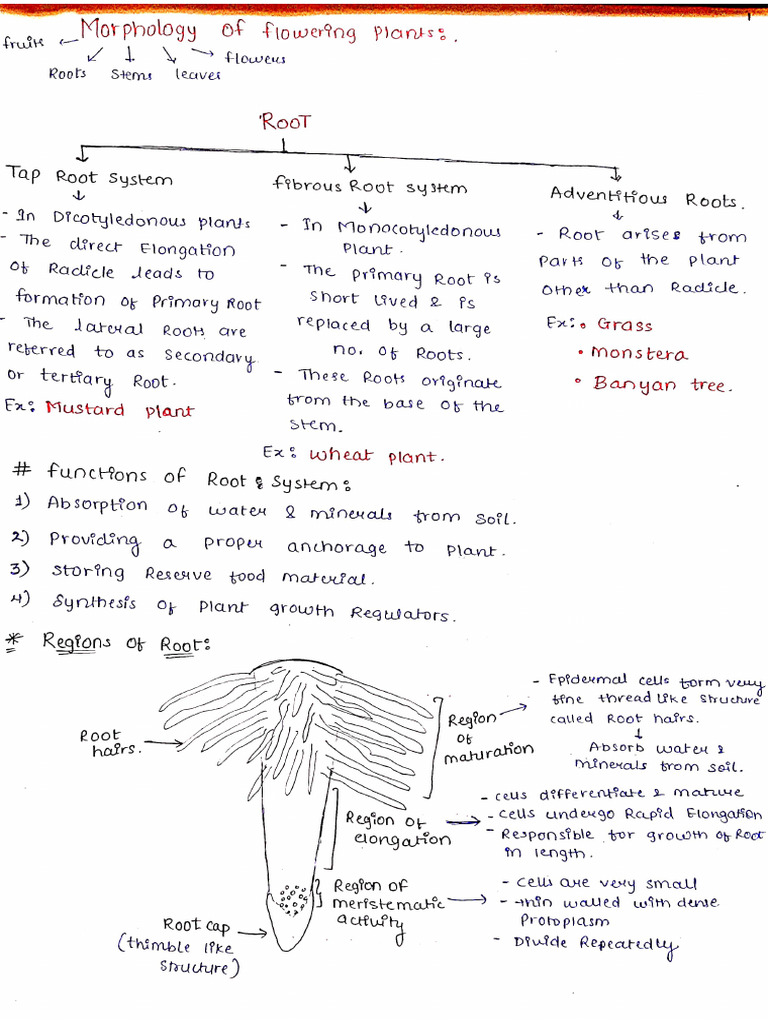 1
Morphology of flowering plants:.
fruits
Roots
Stems
leaves
flowers
ROOT
Tap Root System
- In Dicotyledonous plants
- The direct Elongation
of Radicle leads to
formation of Primary Root
- The lateral Roots are
referred to as secondary
or tertiary Root.
Ex: Mustard plant
fibrous Root system
- In Monocotyledonous
Plant.
- The primary Root is
short lived & is
replaced by a large
no. of Roots.
- These Roots originate
from the base of the
stem.
Ex: wheat plant.
Adventitious Roots.
- Root arises from
parts of the plant
other than Radicle.
Ex: • Grass
• Monstera
• Banyan tree.
# functions of Root System:
1) Absorption of water & minerals from soil.
2) Providing a proper anchorage to plant.
3) Storing Reserve food material.
4) Synthesis of plant growth Regulators.
* Regions of Root:
Root
hairs.
Region
of
maturation
- Epidermal cells form very
fine thread like structure
called Root hairs.
Absorb water &
minerals from soil.
Region of
elongation
- cells differentiate & mature
- cells undergo Rapid Elongation
- Responsible for growth of Root
in length.
Region of
meristematic
activity
- cells are very small
- thin walled with dense
Protoplasm
- Divide Repeatedly
Root cap
(thimble like
structure)